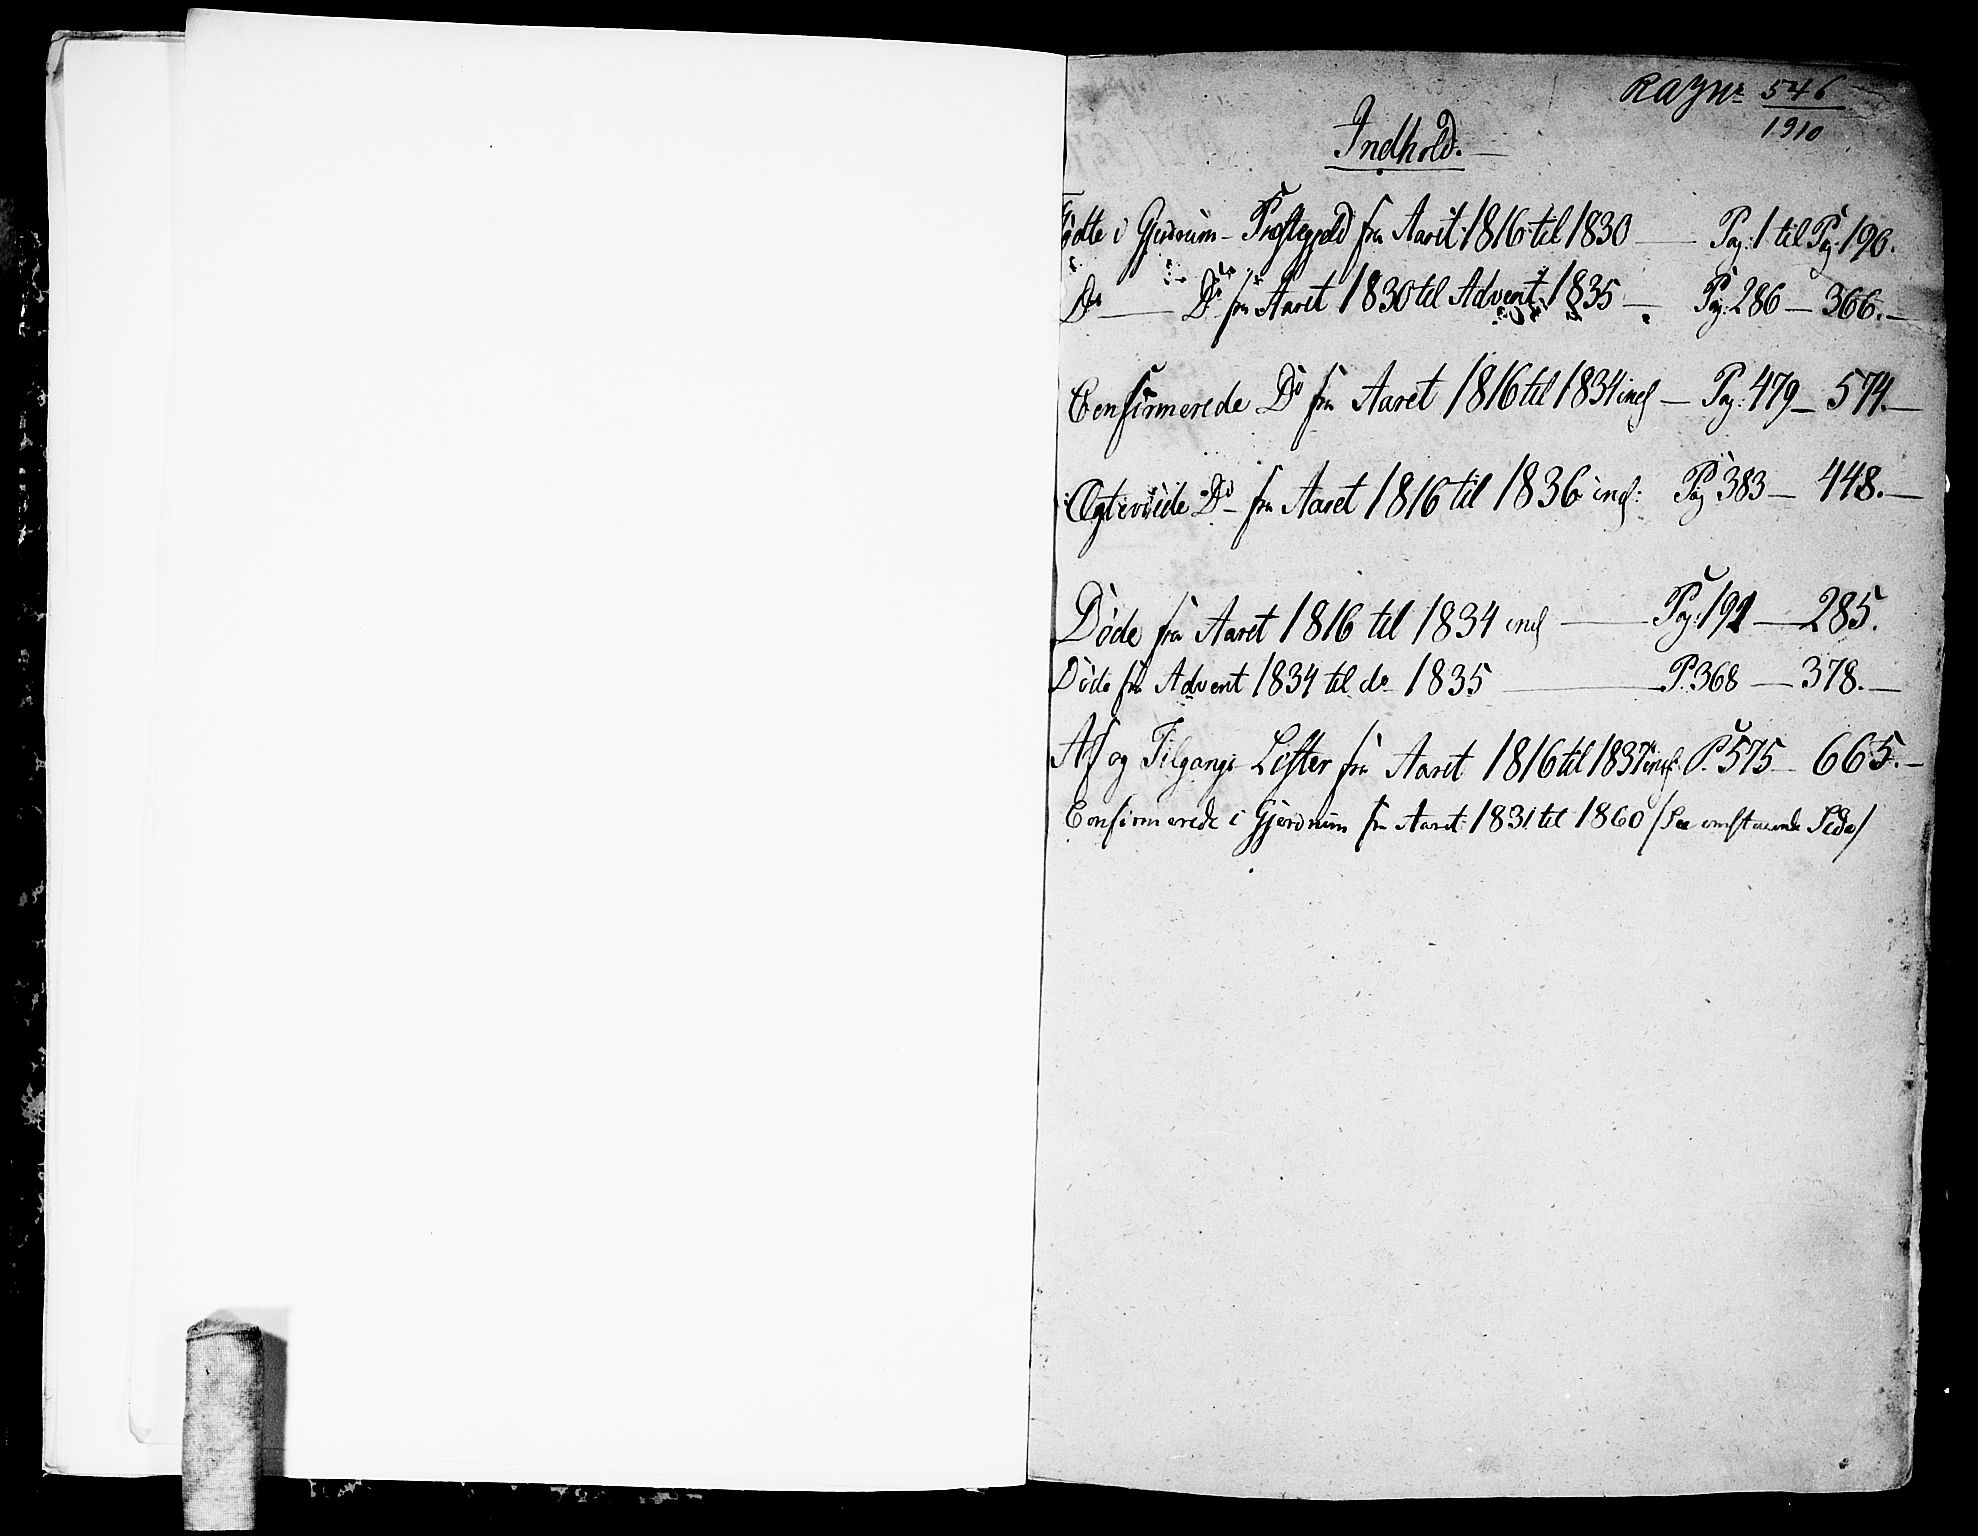 RAJNr 546/1910
Indhold.
Fødte i Gjerdrum - Præstegjeld fra Aaret 1816 til 1830 — Pag: 1 til Pag 190.
Do — Do fra Aaret 1830 til Advent 1835 — Pag: 286 — 366. —
Confirmerede Do fra Aaret 1816 til 1834 incl — Pag: 479 — 574. —
Ægteviede Do — fra Aaret 1816 til 1836 incl: Pag 383 — 448. —
Døde fra Aaret 1816 til 1834 incl — Pag: 191 — 285.
Døde fra Advent 1834 til do 1835 — P. 368 — 378. —
Af og Tilgangs Lister fra Aaret 1816 til 1837 incl: P. 575 — 665. —
Confirmerede i Gjerdrum fra Aaret 1831 til 1860 /See omstaaende Side/